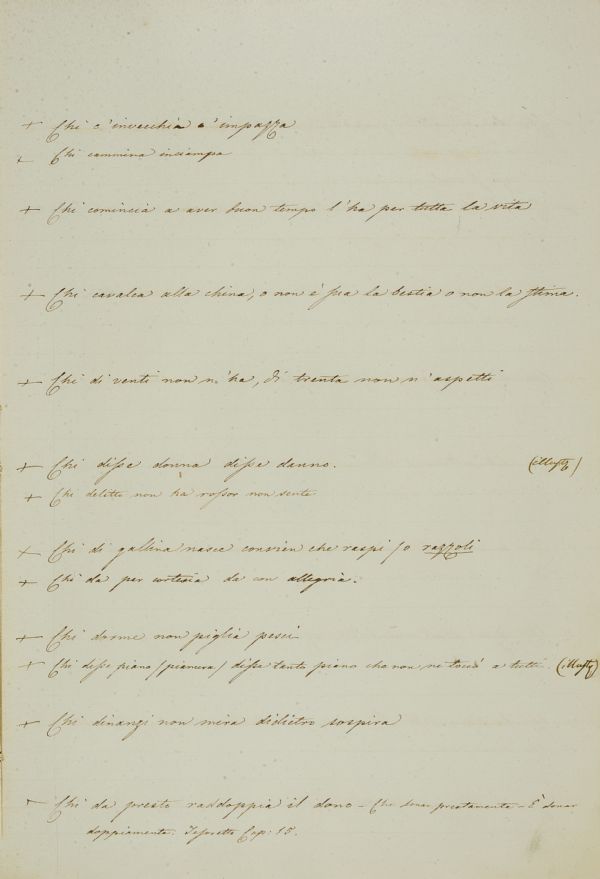 + Chi c'invecchia c'impazza
+ Chi cammina inciampa
+ Chi comincia a aver buon tempo l'ha per tutta la vita
+ Chi cavalca alla china, o non è sua la bestia o non la stima.
+ Chi di venti non n'ha, di trenta non n'aspetti
+ Chi disse donna disse danno. (illust)
+ Chi delitto non ha rossor non sente
+ Chi di gallina nasce convien che raspi /o razzoli
+ Chi da per cortesia da con allegria.
+ Chi dorme non piglia pesci
+ Chi disse piano /pianura/ disse tanto piano che non ne toccò a tutti. (illust)
+ Chi dinanzi non mira didietro sospira
+ Chi da presto raddoppia il dono – Che donar prestamente – È donar
doppiamente. Tesoretto Cap: 15.